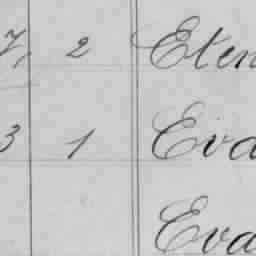 7, 2 Eten
3 1 Eva
Eva